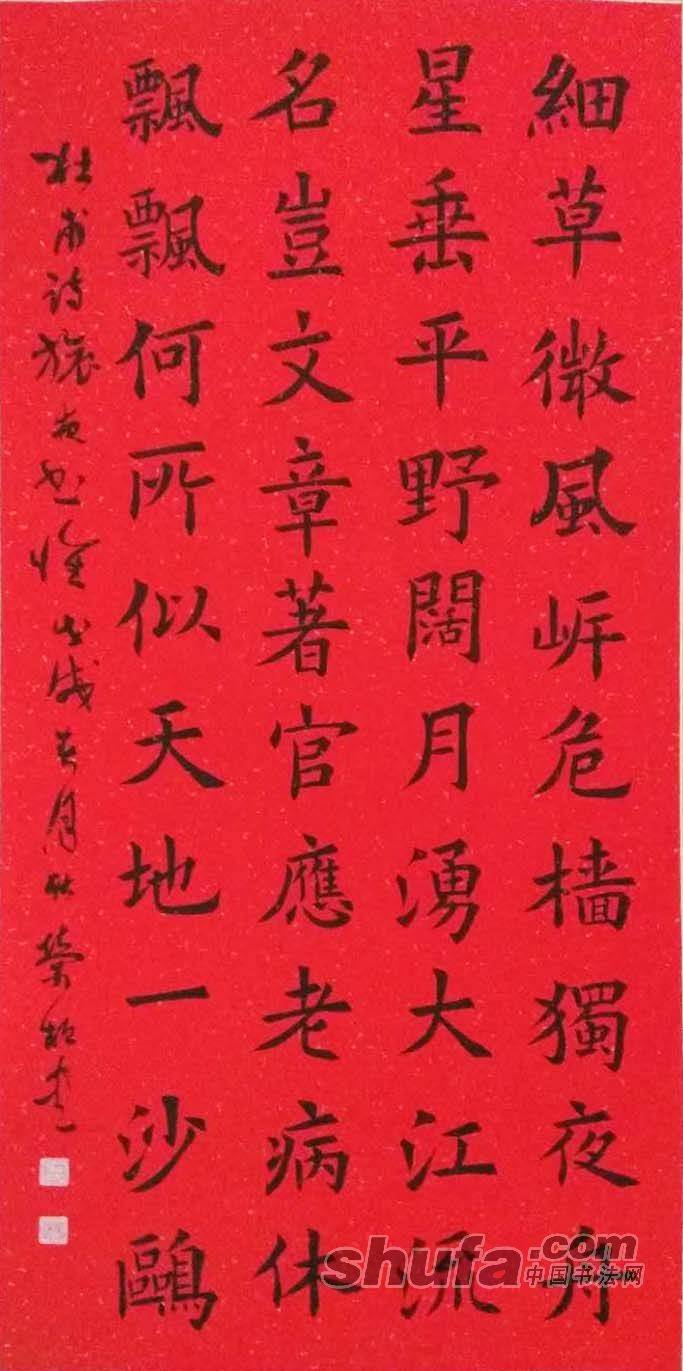 細草微風岸危檣獨夜舟
星垂平野闊月湧大江流
名豈文章著官應老病休
飄飄何所似天地一沙鷗
杜甫詩旅夜书懷戊戌月
shufa.com
中国书法网